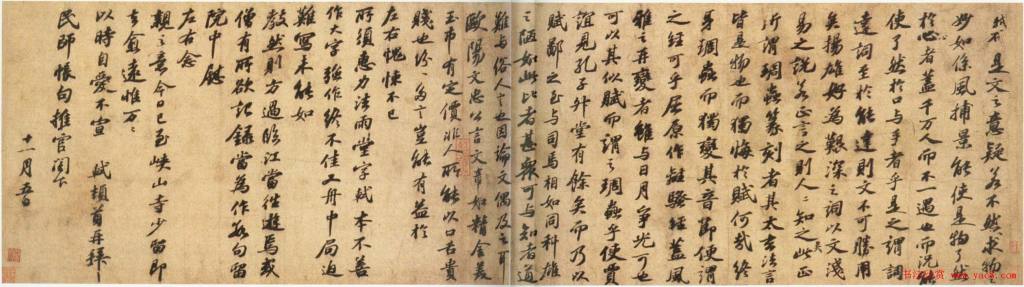 軾不 是文之意疑若不然求物之
妙如係風捕景能使是物了然
於心者蓋千万人而不一遇也而況能
使了然於口与手者乎是之謂詞
達詞至於能達則文不可勝用
矣揚雄好為艱深之詞以文淺
易之説若正言之則人人知之矣此正
所謂琱蟲篆刻者其太玄法言
皆是物也而獨悔於賦何哉終
身琱蟲而獨變其音節便謂
之經可乎屈原作離騷經蓋風
雅之再變者雖与日月爭光可也
可以其似賦而謂之琱蟲乎使賈
誼見孔子升堂有餘矣而乃以
賦鄙之至与司馬相如同科雄
之陋如此比者甚衆可与知者道
難与俗人言也因論文偶及之耳
歐陽文忠公言文章如精金美
玉市有定價非人所能以口舌貴
賤也紛紛多言豈能有益於
左右愧悚不已
所須惠力法雨堂字軾本不善
作大字強作終不佳又舟中局迫
難寫未能如
教然則方過臨江當往遊焉或
僧有所欲記錄當為作數句留
院中慰
左右念
親之意今日已至峽山寺少留即
去愈遠惟万万
以時自愛不宣 軾頓首再拜
民師帳句推官閣下
十一月五日